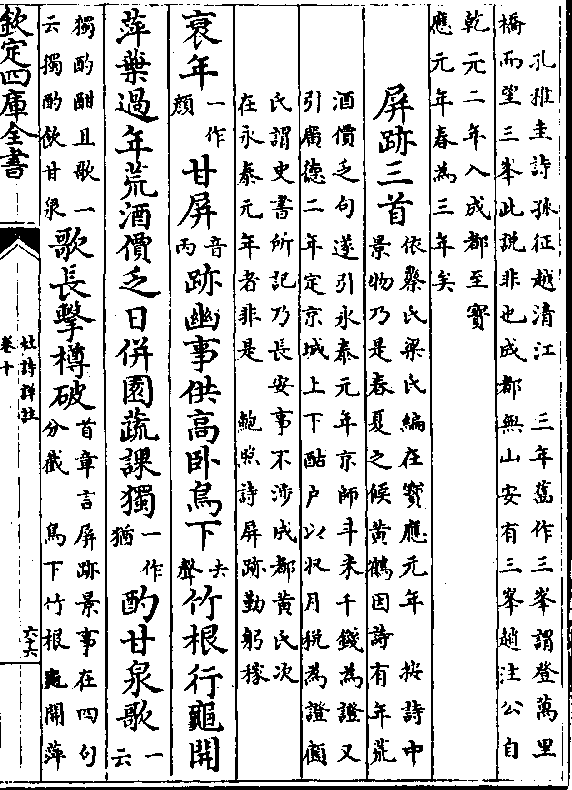 孔稚圭詩孤征越清江　三年舊作三峯謂登萬里
橋而望三峯此説非也成都無山安有三峯趙注公自
乾元二年入成都至寶
應元年春為三年矣
屏跡三首
依蔡氏梁氏編在寳應元年　按詩中
景物乃是春夏之候黄鶴因詩有年荒
酒價乏句遂引永泰元年京師斗米千錢為證又
引廣德二年定京城上下酤户以収月税為證顧
氏謂史書所記乃長安事不涉成都黄氏次
在永泰元年者非是　鮑照詩屏跡勤躬稼
衰年
一作
顔
甘屏
音
丙
跡幽事供高卧鳥下
去
聲
竹根行龜開
萍葉過年荒酒價乏日併園蔬課獨
一作
猶
酌甘泉歌
一
云
獨酌酣且歌一
云獨酌飲甘泉
歌長擊樽破
首章言屏跡景事在四句
分截　鳥下竹根龜開萍
欽定四庫全書
杜詩詳註
卷十
六十六